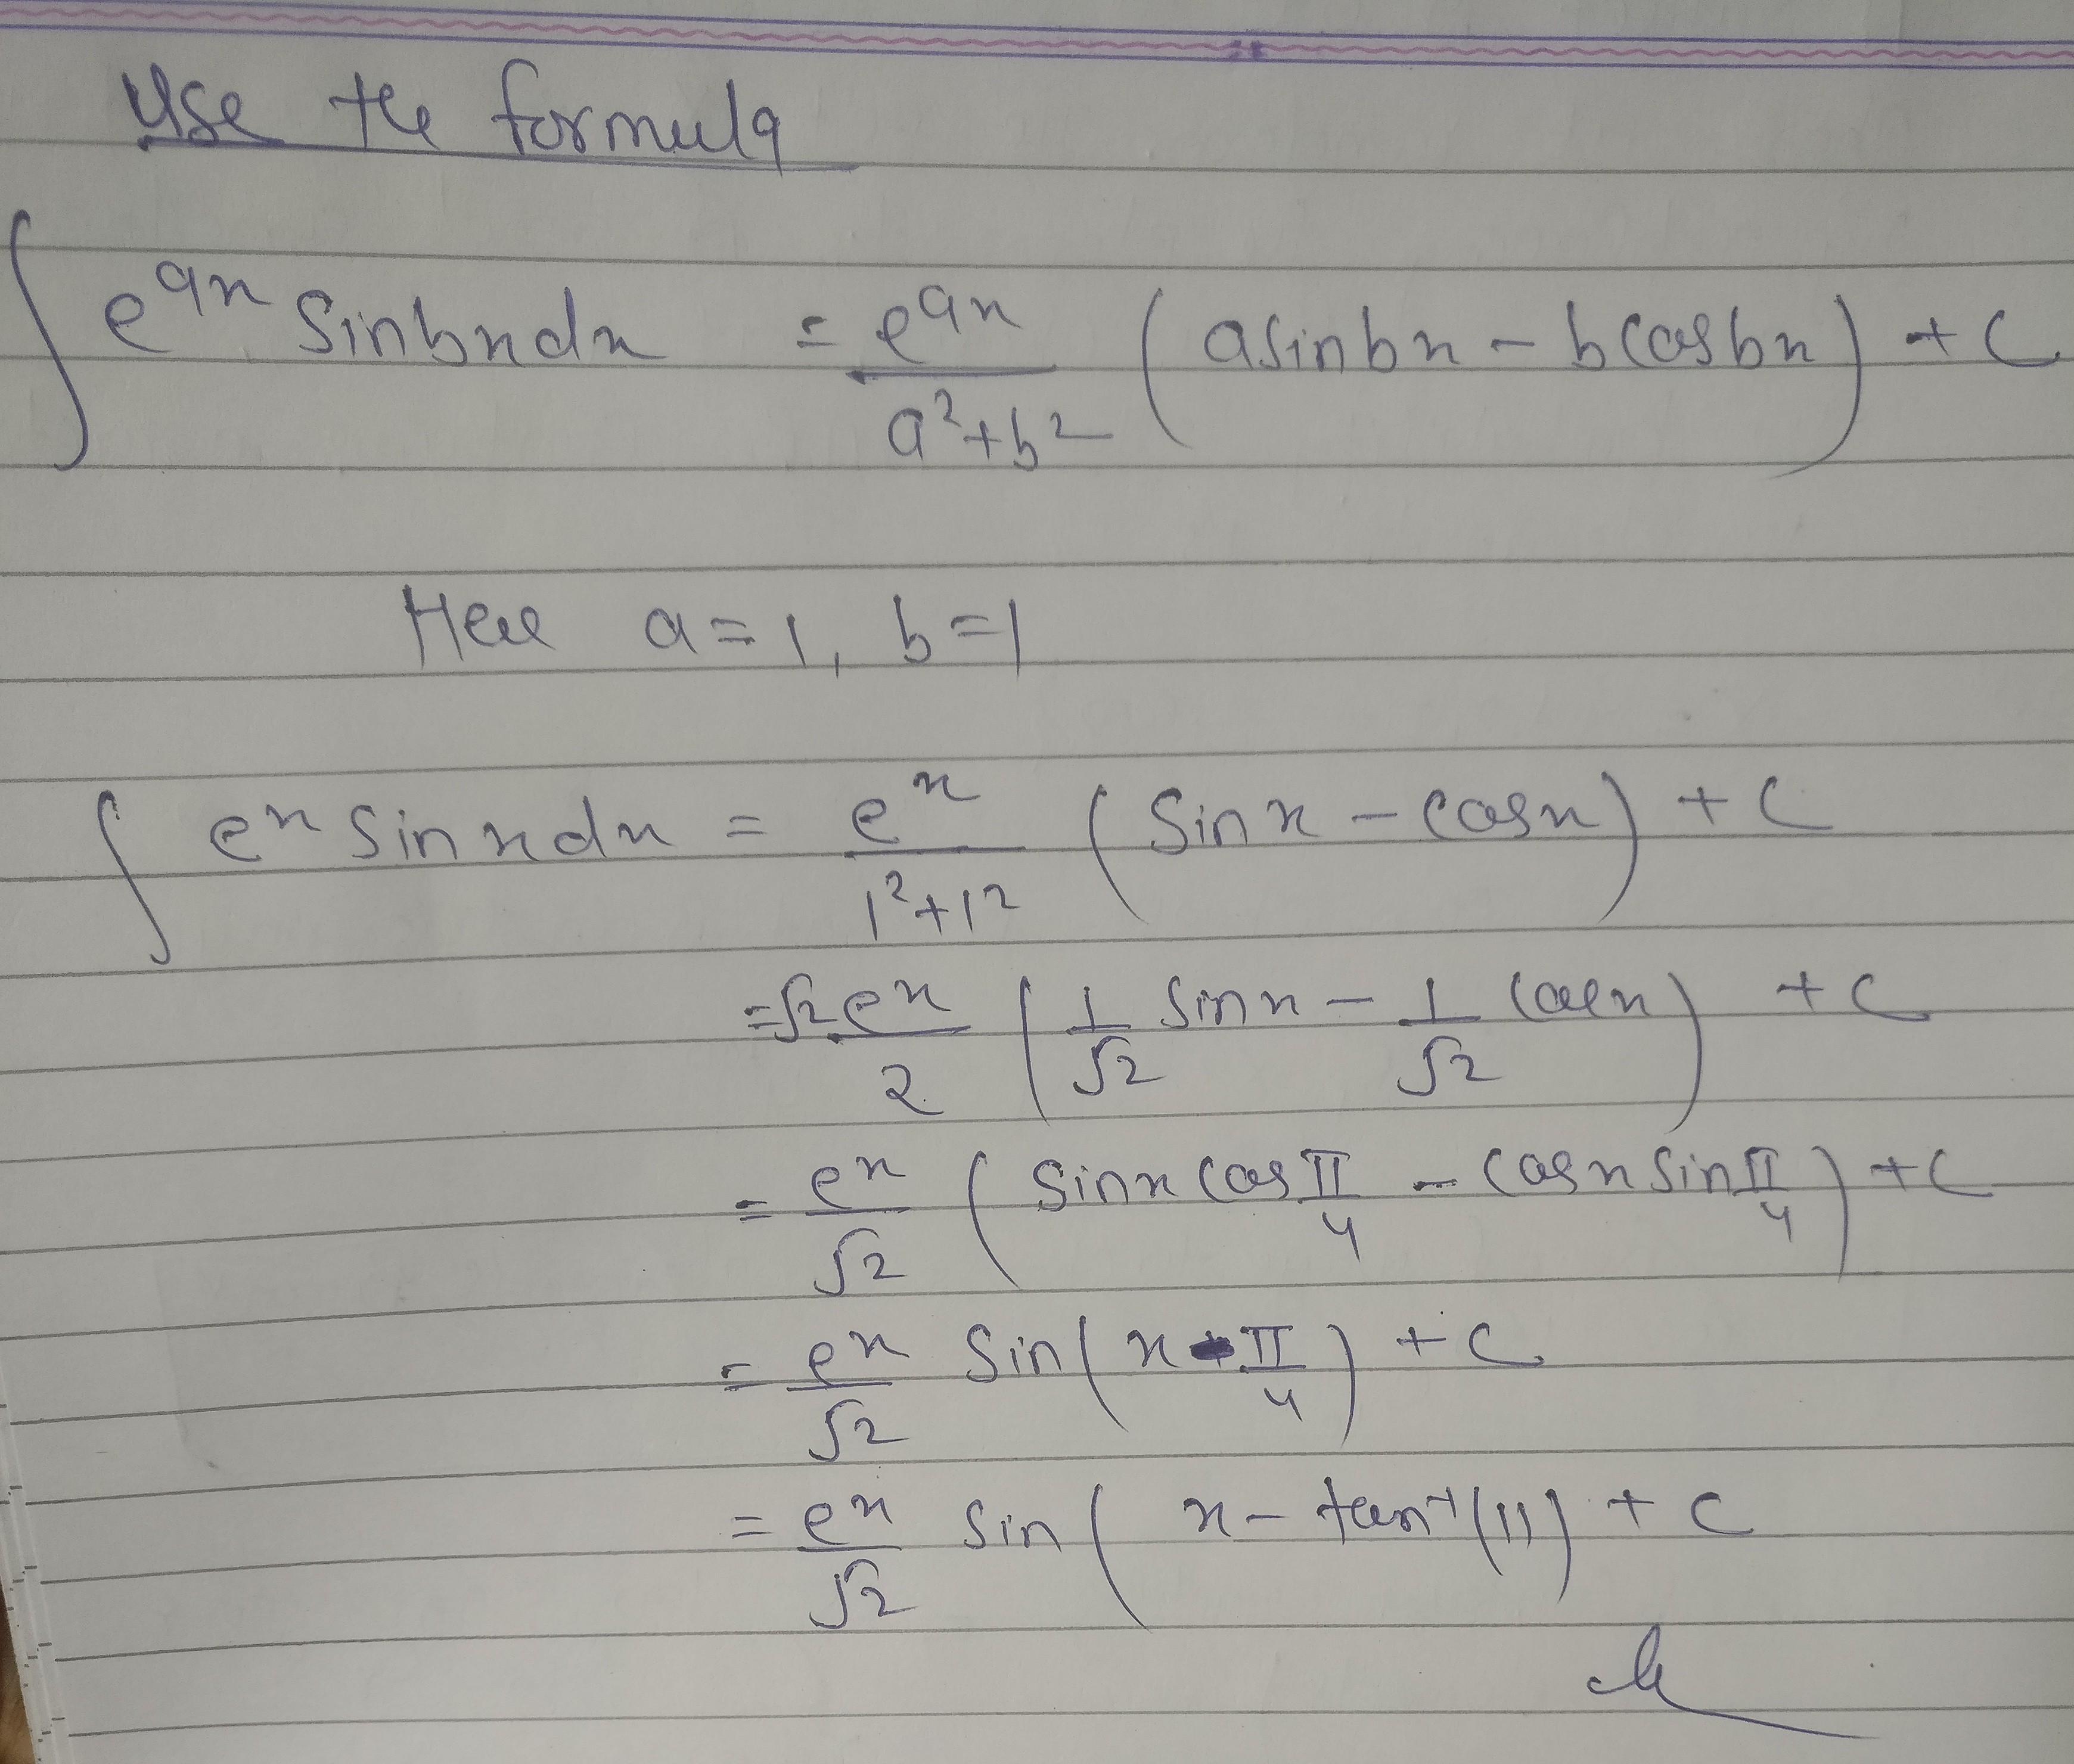 Use the formula
∫ e^{ax} sin bx dx = e^{ax}/(a²+b²) (a sin bx - b cos bx) + C
Here a=1, b=1
∫ e^x sin x dx = e^x/(1²+1²) (sin x - cos x) + C
= √2 e^x/2 (1/√2 sin x - 1/√2 cos x) + C
= e^x/√2 (sin x cos π/4 - cos x sin π/4) + C
= e^x/√2 sin(x - π/4) + C
= e^x/√2 sin(x - tan⁻¹(1)) + C